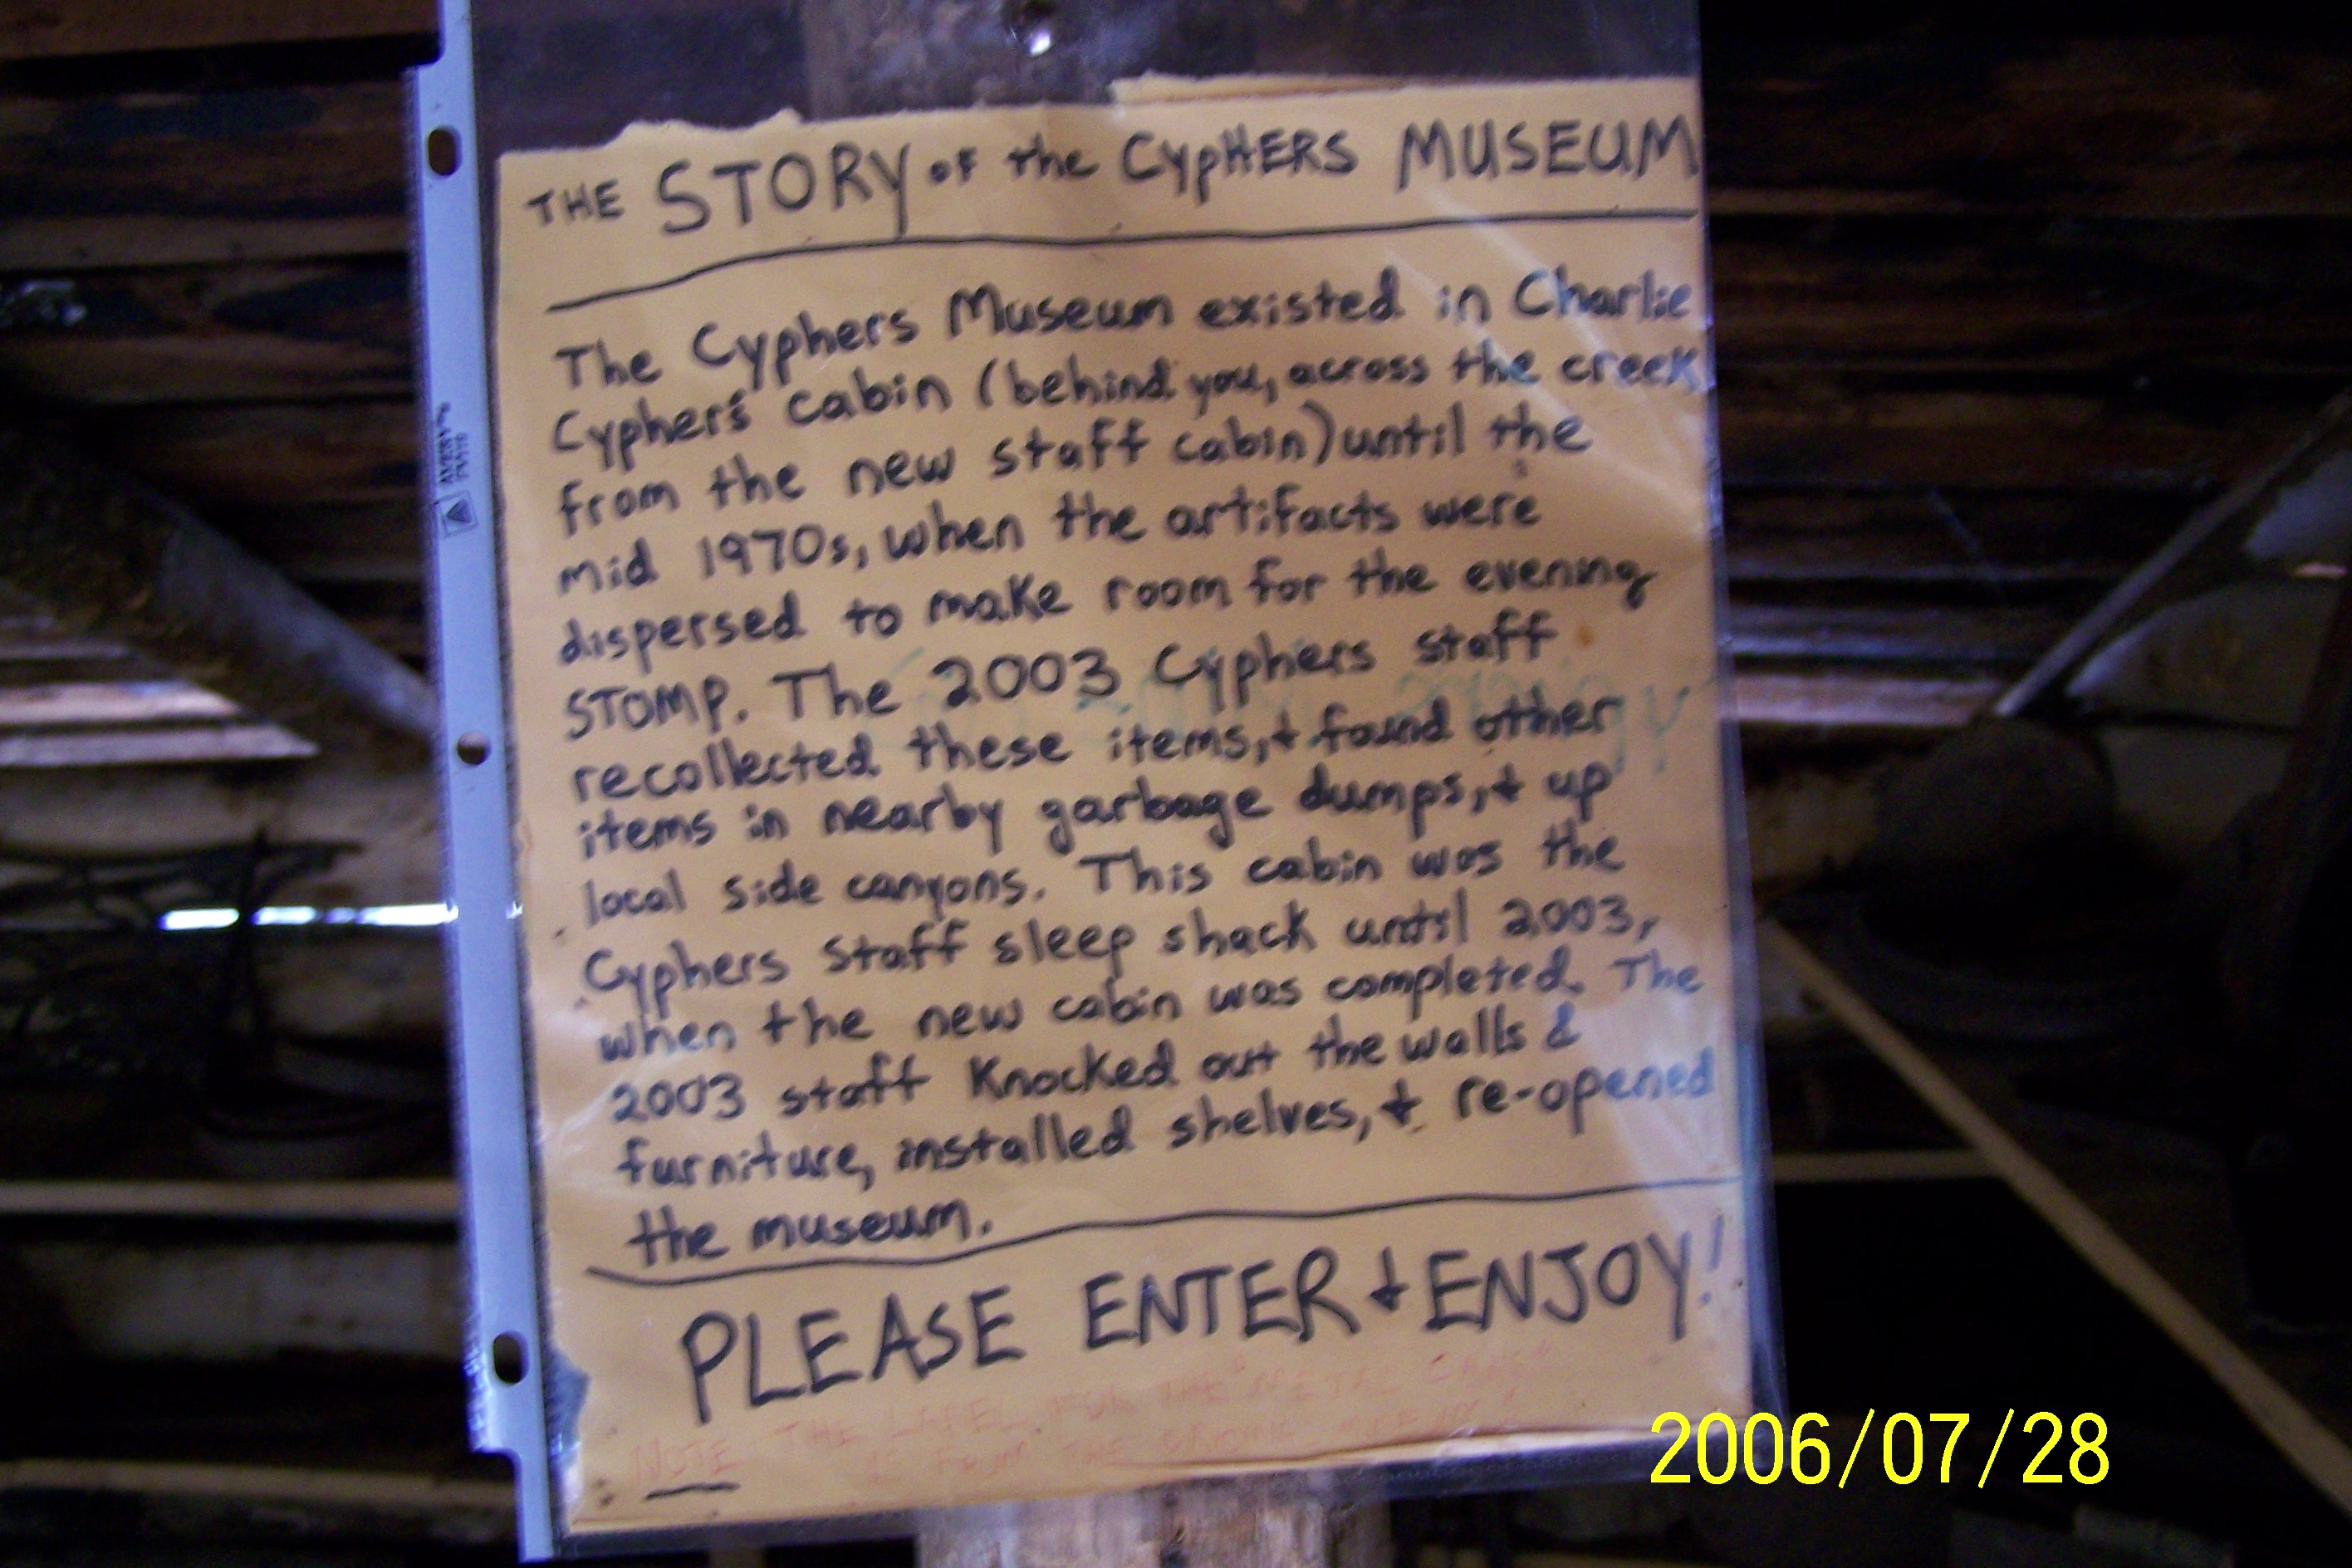 THE STORY OF the CYPHERS MUSEUM
The Cyphers Museum existed in Charlie
Cypher's cabin (behind you, across the creek
from the new staff cabin) until the
mid 1970s, when the artifacts were
dispersed to make room for the evening
STOMP. The 2003 Cyphers staff
recollected these items, + found other
items in nearby garbage dumps, + up
local side canyons. This cabin was the
Cyphers staff sleep shack until 2003,
when the new cabin was completed. The
2003 staff knocked out the walls &
furniture, installed shelves, + re-opened
the museum.
PLEASE ENTER + ENJOY!
NOTE THE LABEL FOR THE "METAL
IS from
2006/07/28